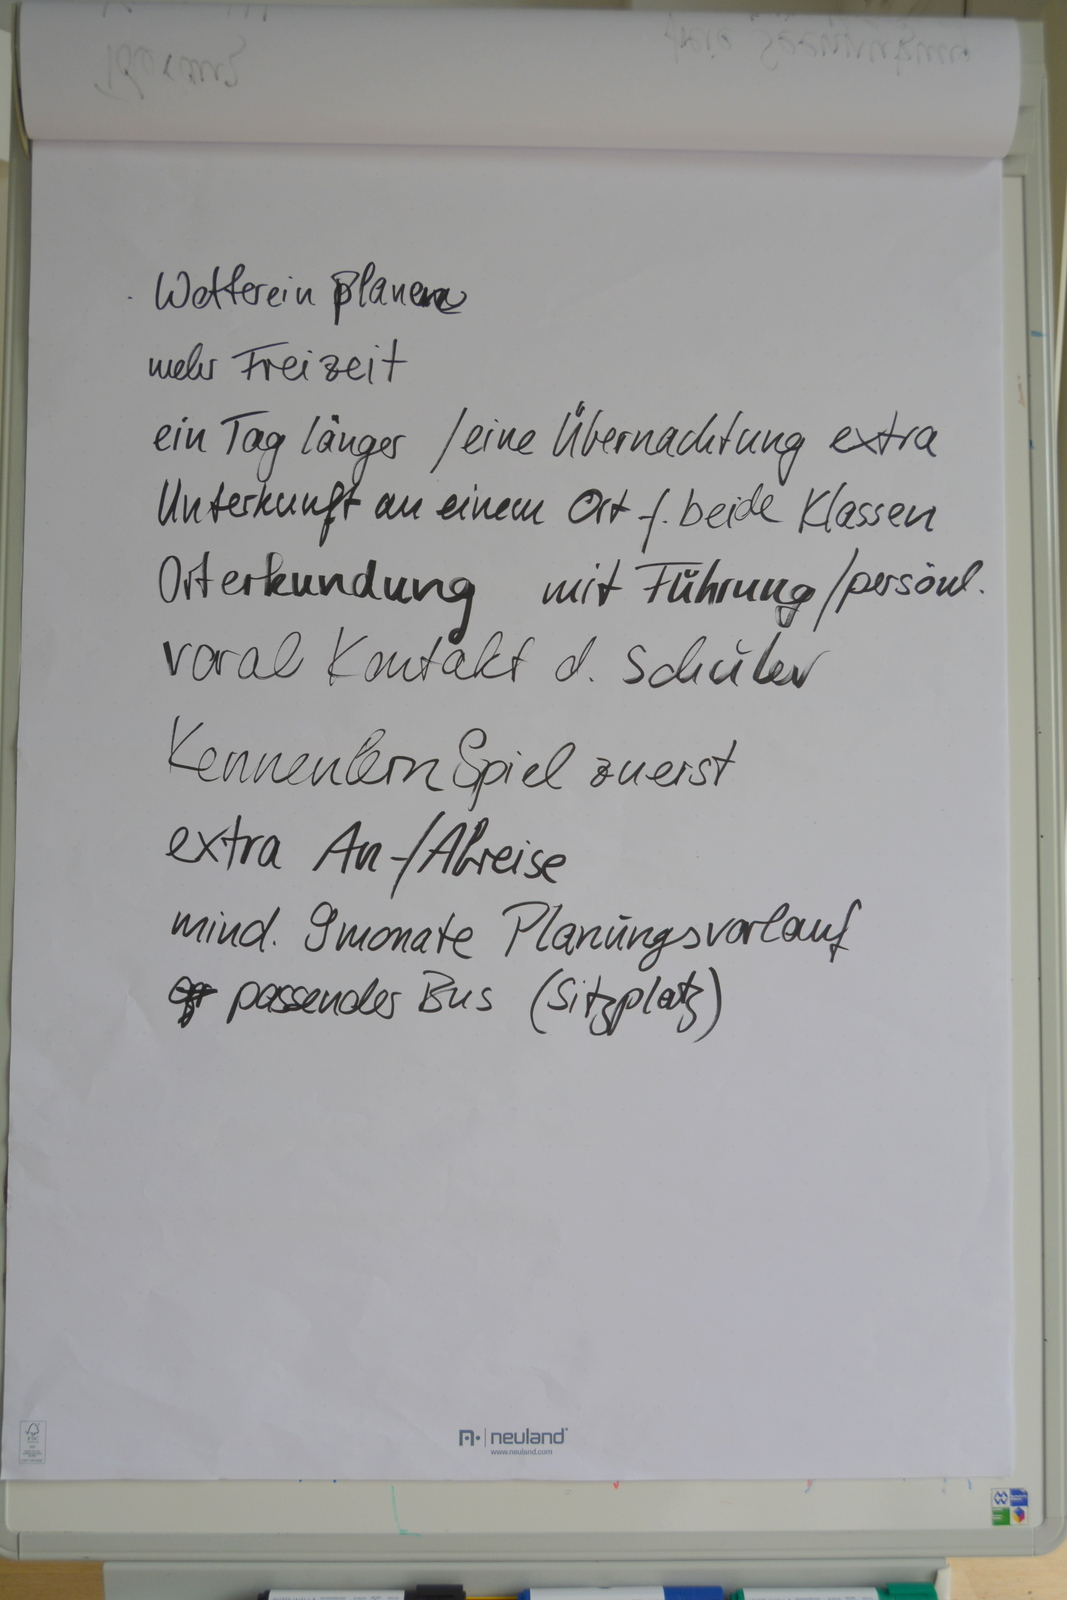 Wetterein planen
mehr Freizeit
ein Tag länger / eine Übernachtung extra
Unterkunft an einem Ort f. beide Klassen
Orterkundung mit Führung / persönl.
vorab Kontakt d. Schüler
Kennenlern Spiel zuerst
extra An-/Abreise
mind. 9monate Planungsvorlauf
passender Bus (Sitzplatz)
neuland
www.neuland.com